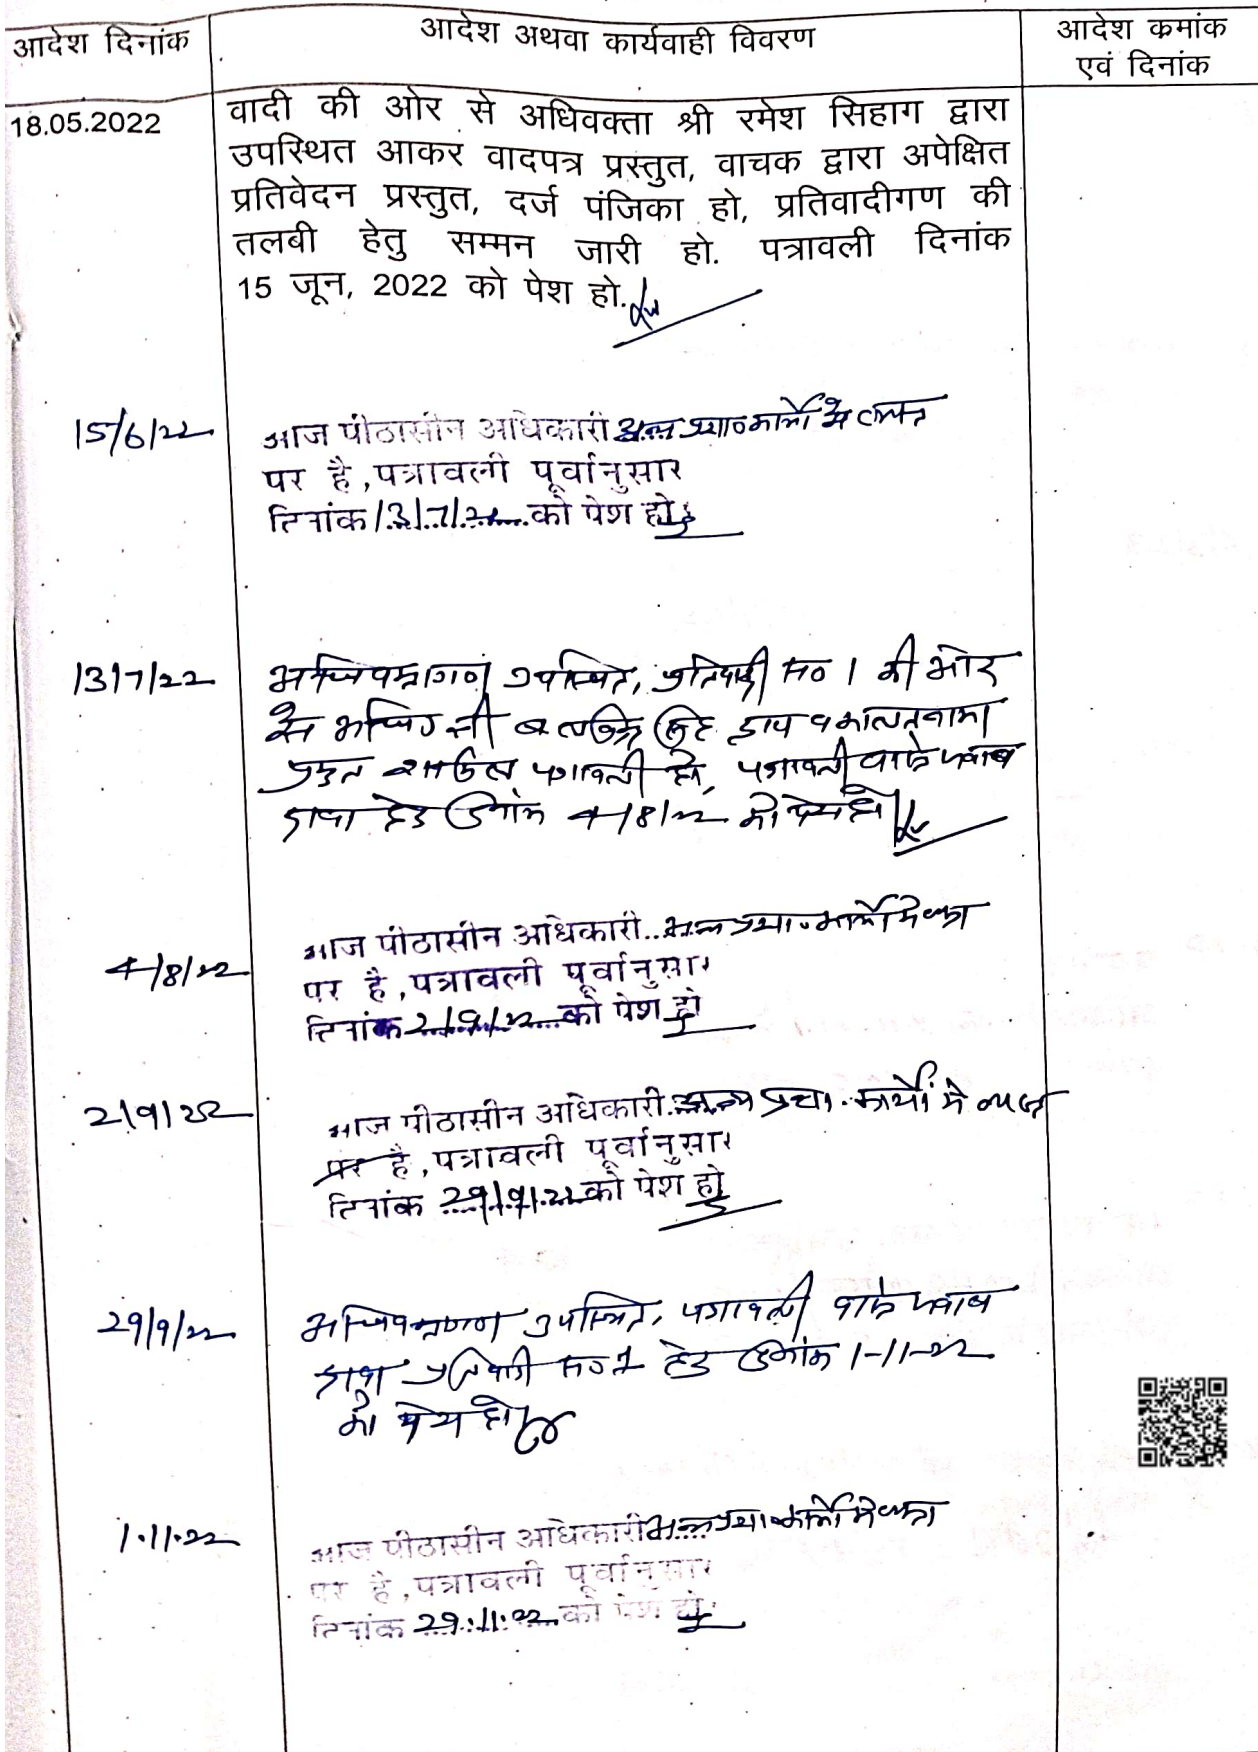 आदेश दिनांक
आदेश अथवा कार्यवाही विवरण
आदेश कमांक
एवं दिनांक
18.05.2022
वादी की ओर से अधिवक्ता श्री रमेश सिहाग द्वारा
उपस्थित आकर वादपत्र प्रस्तुत, वाचक द्वारा अपेक्षित
प्रतिवेदन प्रस्तुत, दर्ज पंजिका हो, प्रतिवादीगण की
तलबी हेतु सम्मन जारी हो. पत्रावली दिनांक
15 जून, 2022 को पेश हो.
15/6/22
आज पीठासीन अधिकारी अन्य प्रशा० कार्यो मे व्यस्त
पर है, पत्रावली पूर्वानुसार
दिनांक 13/7/22 को पेश हो
13/7/22
अभिभाषकगण उपस्थित, प्रतिवादी सं० 1 की ओर
से श्री सिंह द्वारा वकालतनामा
शामिल पत्रावली हो, पत्रावली वास्ते जवाब
दावा हेतु दिनांक 4/8/22 को पेश हो
4/8/22
आज पीठासीन अधिकारी अन्य प्रशा. कार्यो मे व्यस्त
पर है, पत्रावली पूर्वानुसार
दिनांक 2/9/22 को पेश हो
2/9/22
आज पीठासीन अधिकारी अन्य प्रशा. कार्यो मे व्यस्त
पर है, पत्रावली पूर्वानुसार
दिनांक 29/9/22 को पेश हो
29/9/22
उपस्थित, पत्रावली वास्ते जवाब
दावा प्रतिवादी सं० 1 हेतु दिनांक 1-11-22
को पेश हो
1.11.22
आज पीठासीन अधिकारी अन्य प्रशा. कार्यो मे व्यस्त
पर है, पत्रावली पूर्वानुसार
दिनांक 29.11.22 को पेश हो